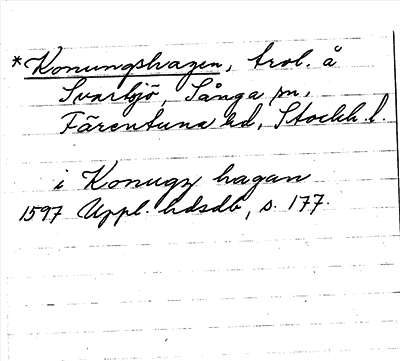 *Konungshagen, trol. å
Svartsjö, Sånga sn,
Färentuna hd, Stockh. l.
i Konugz hagan
1597 Uppl. hdsdb, s. 177.